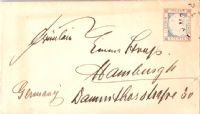 Fräulein
Emma
Hamburgh
Germany Dammthorstrasse 30